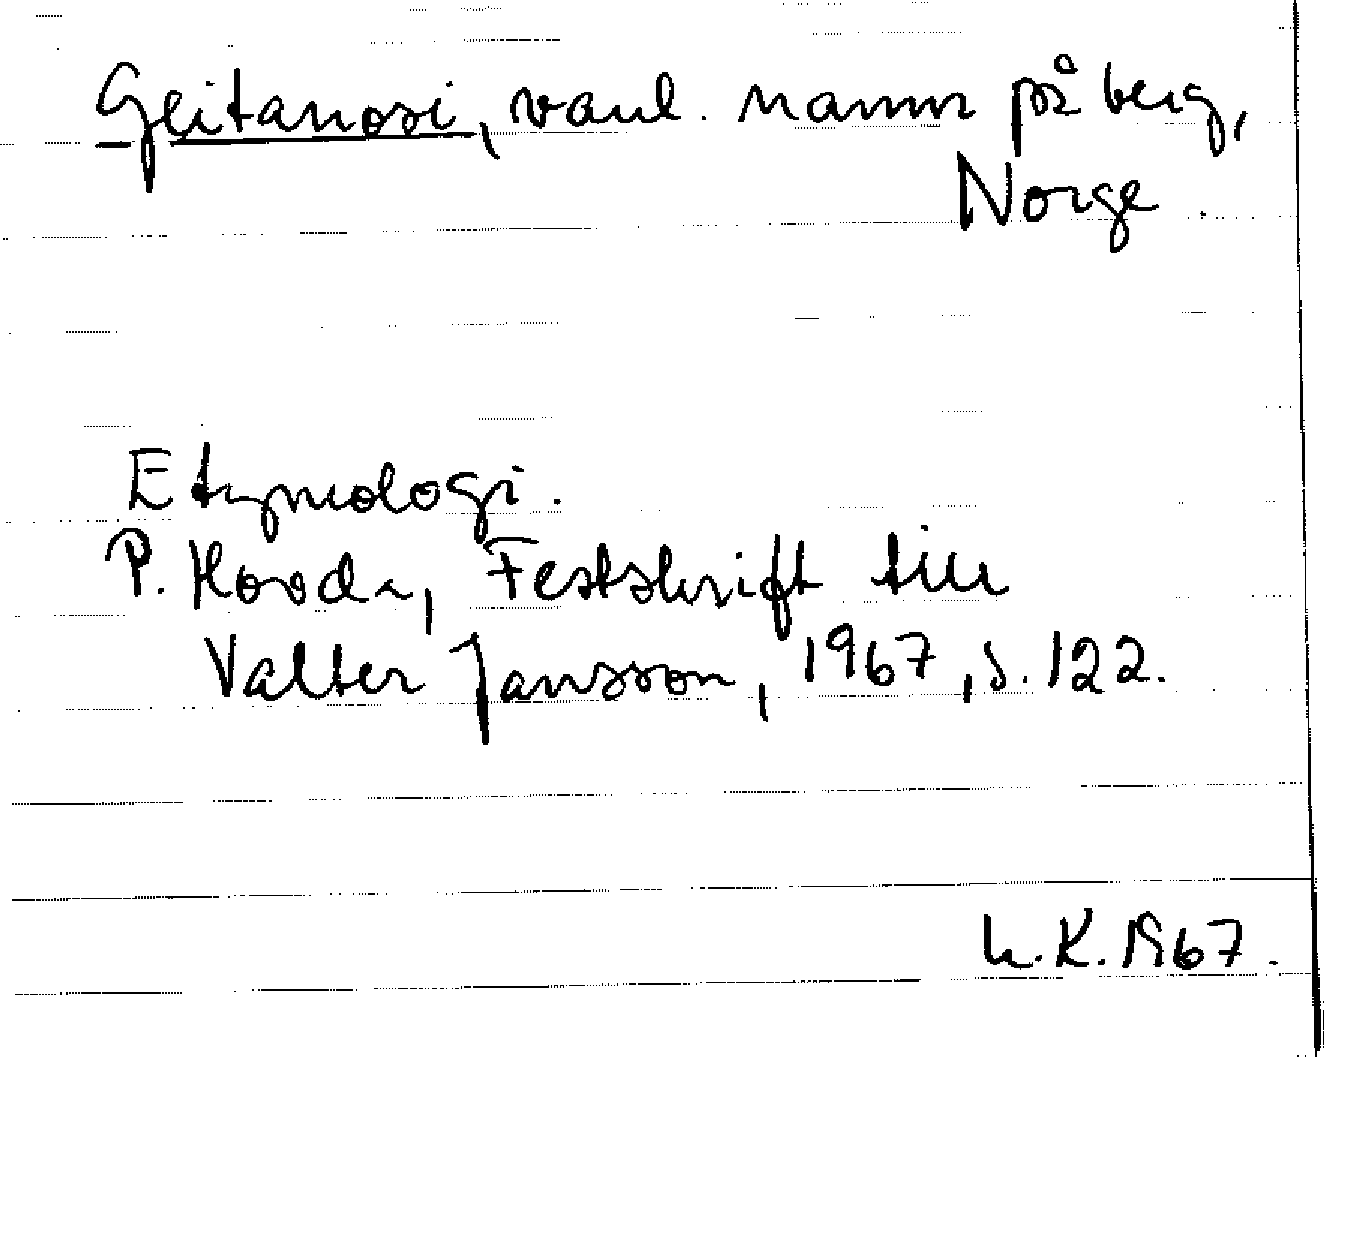 Geitanosi, vanl. namn på berg,
Norge.
Etymologi.
P. Hovda, Festskrift till
Valter Jansson, 1967, s. 122.
L.K. 1967.